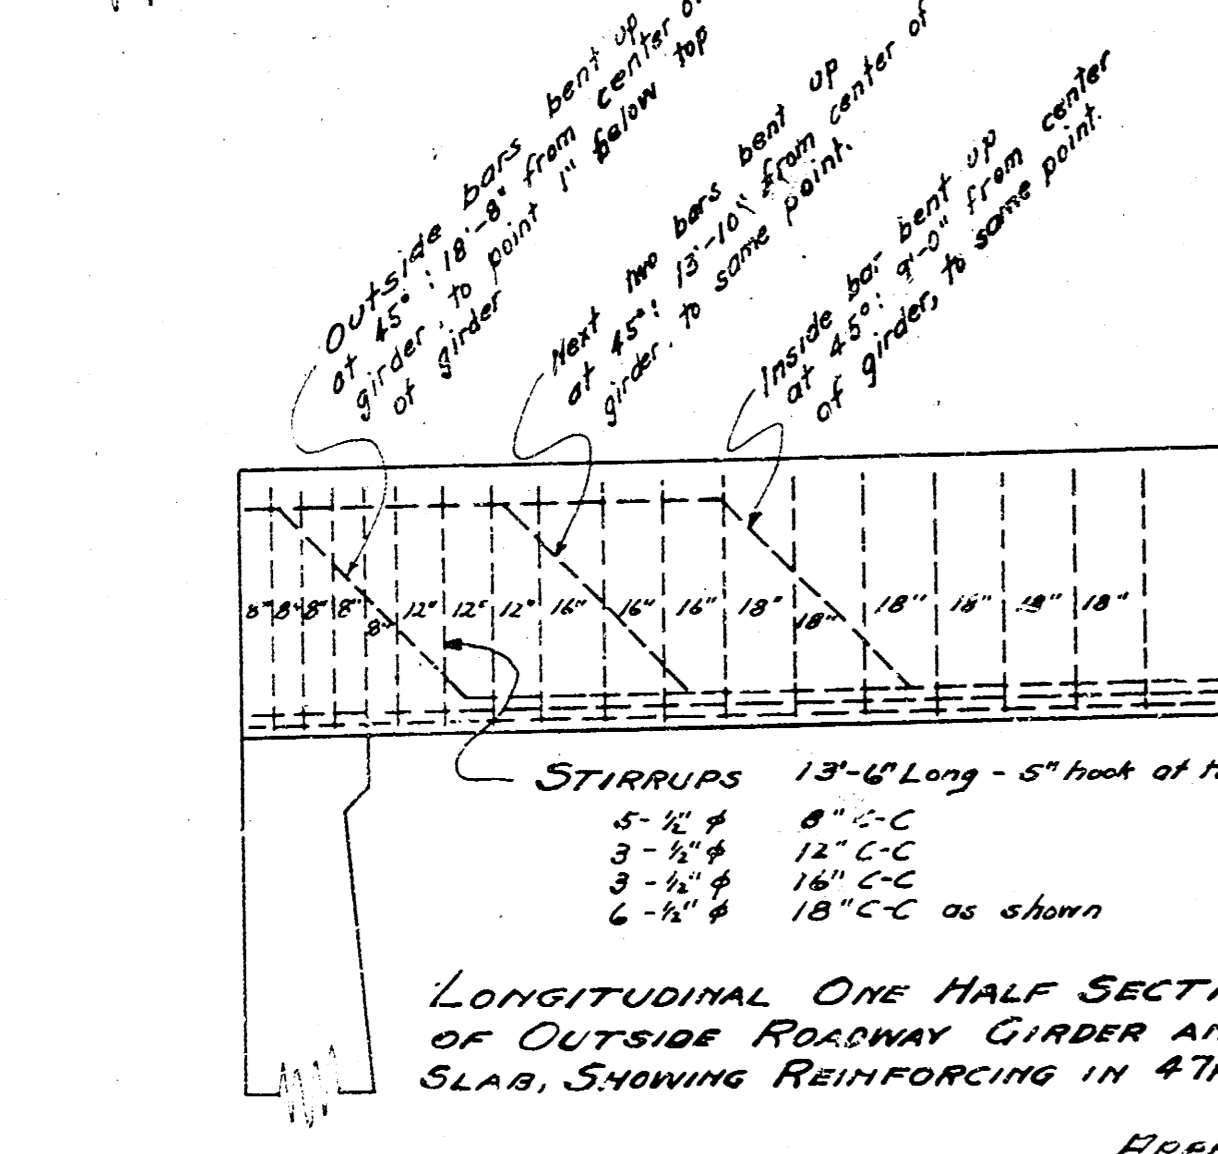 Outside bars bent up
at 45°: 18'-8" from center of
girder, to point 1" below top
of girder
Next two bars bent up
at 45°: 13'-10" from center of
girder, to same point.
Inside bar bent up
at 45°: 9'-0" from center
of girder, to same point.
8" 8" 8" 8" 8" 12" 12" 12" 16" 16" 16" 18" 18" 18" 18" 18" 18"
STIRRUPS 13'-6" Long - 5" hook at
5-½" φ 8" C-C
3-½" φ 12" C-C
3-½" φ 16" C-C
6-½" φ 18" C-C as shown
LONGITUDINAL ONE HALF SECTI
OF OUTSIDE ROADWAY GIRDER AN
SLAB, SHOWING REINFORCING IN 47